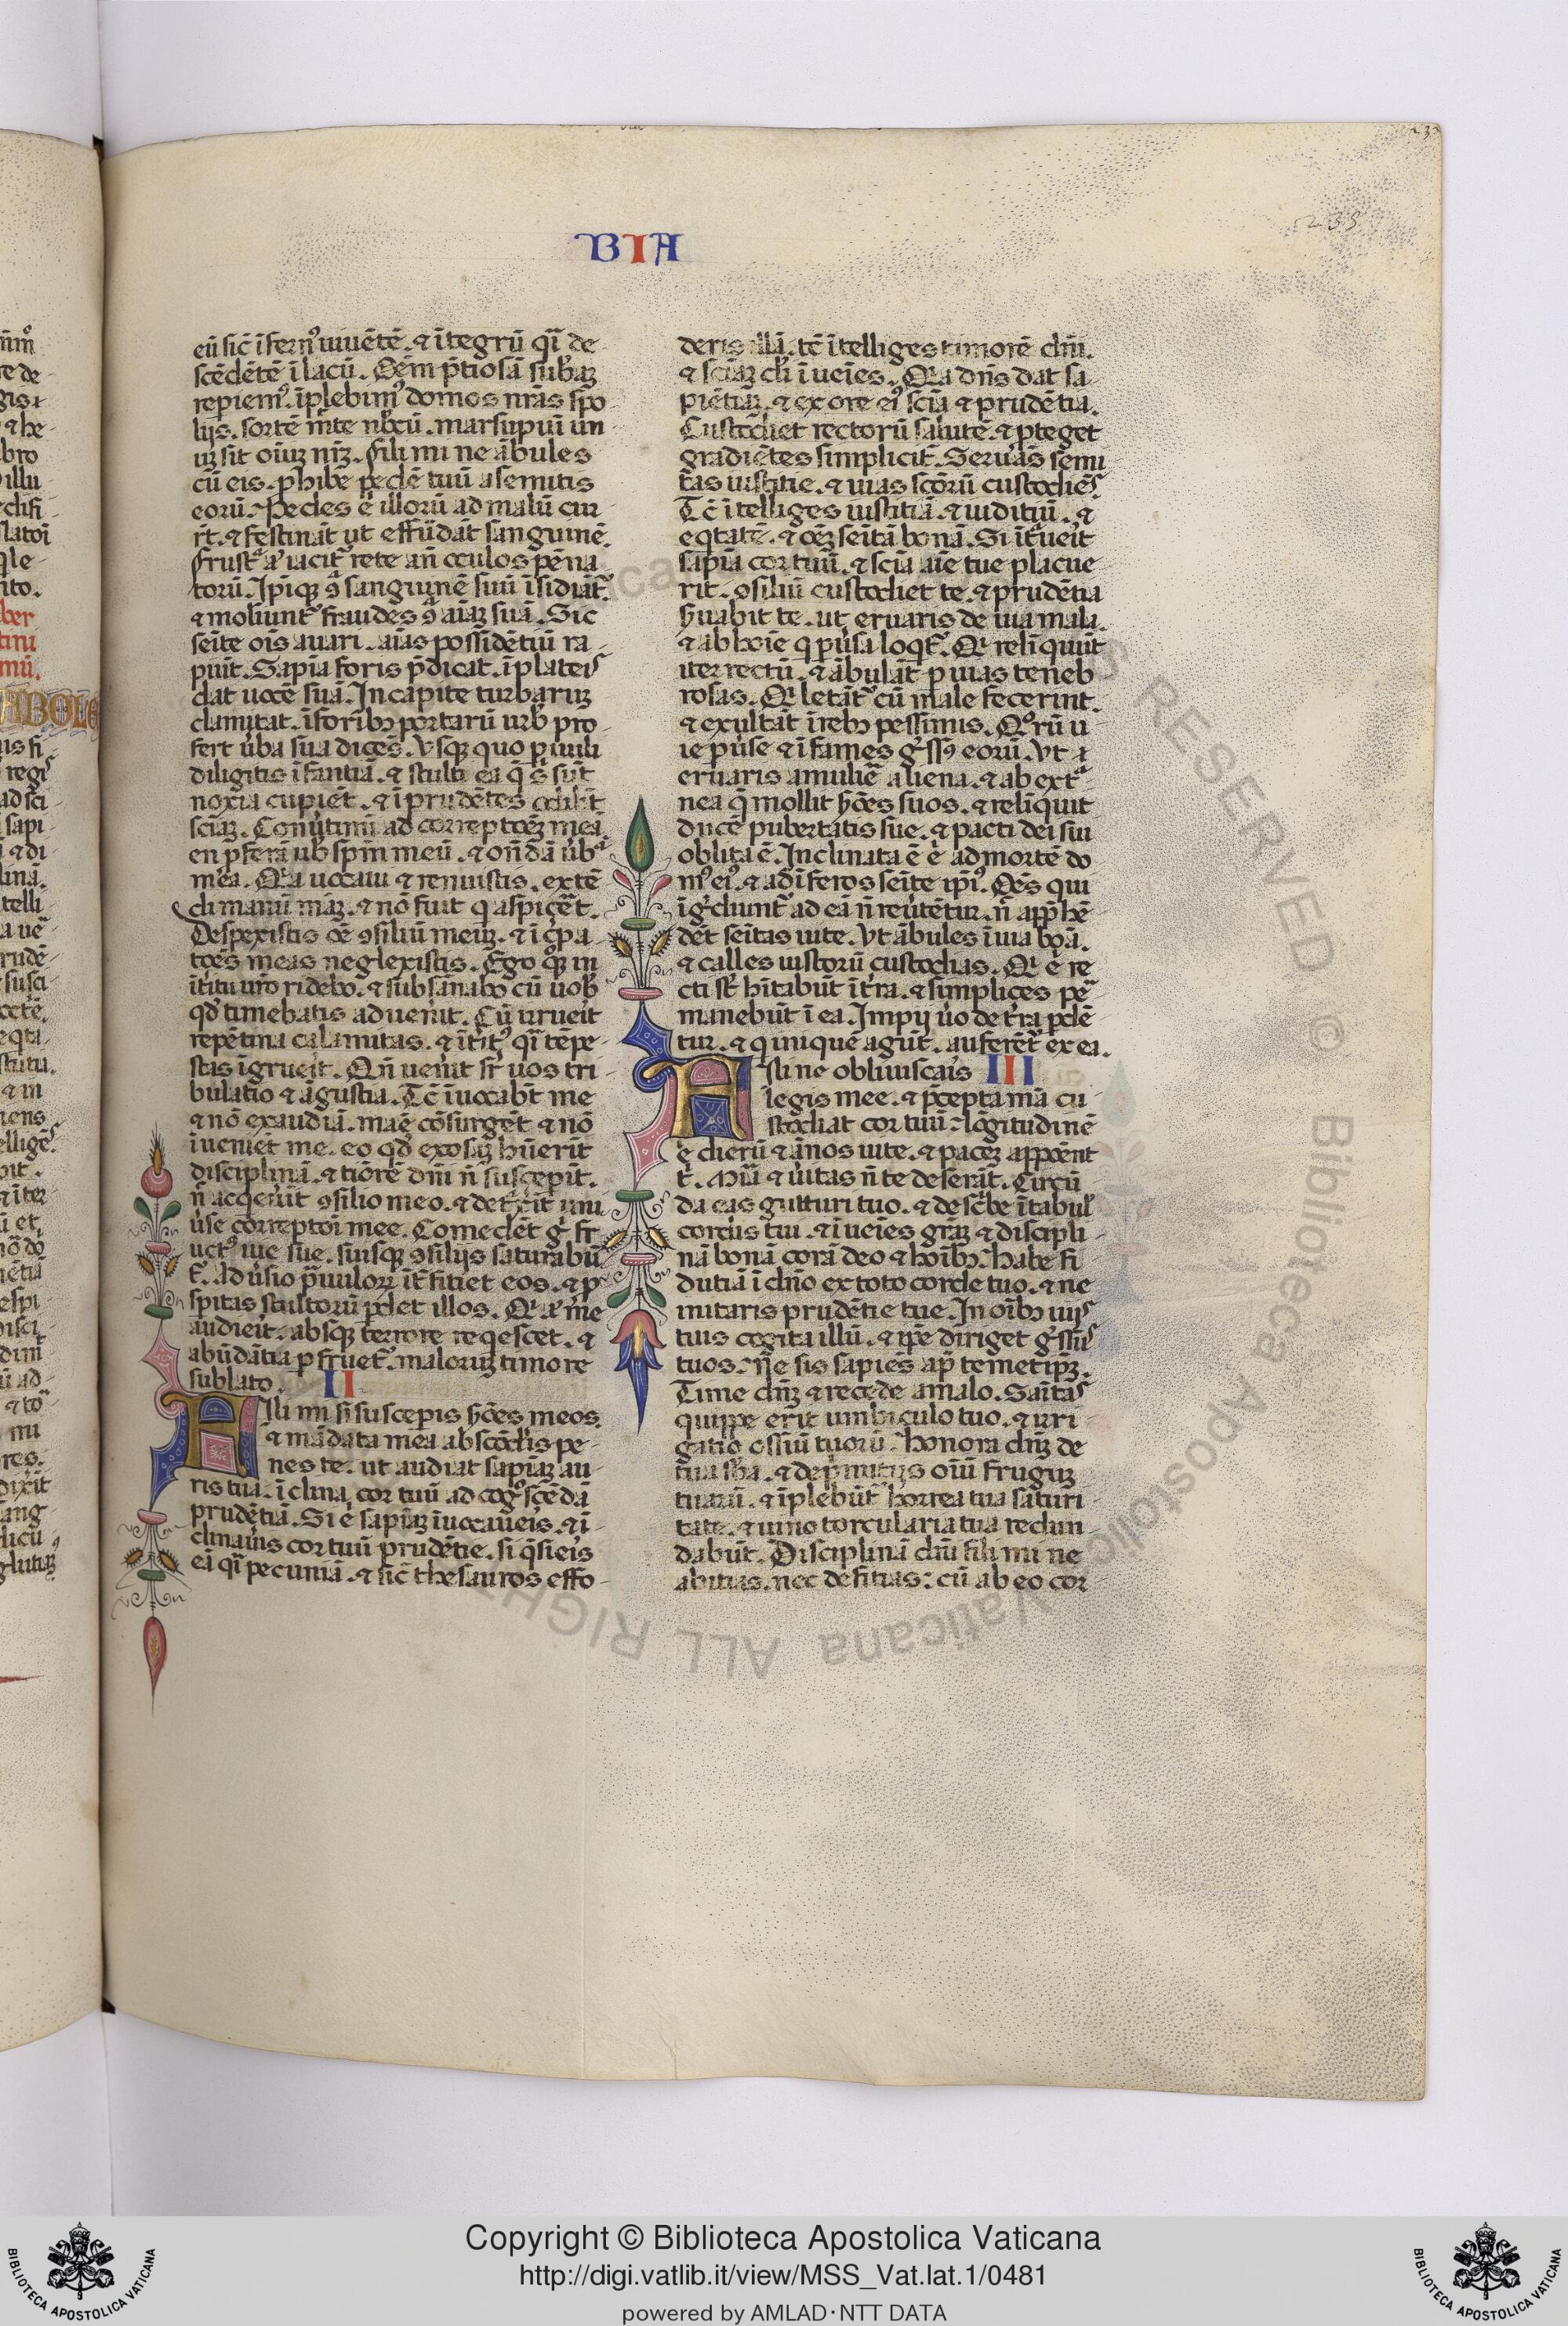 BIA
eū sič īfern᷒ uiuētē. ⁊ ītegrū qͥi de
scēdētē ī lacū. Oēm p̄tiosā sub̄aʒ
repiem᷒. īplebim᷒ domos nr̄as spo
lijs. sortē m̄te nb̄cū. marsupiū un
uʒ sit oiuʒ nr̄ʒ. fili mi ne ābules
cū eis. p̄hibe pedē tuū a semitis
eorū. Pedes e̓ illorū ad malū cur
rūt. ⁊ festināt ut effūdāt sanguinē.
frustͣ aͧ iacit᷑ rete an̄ oculos pēna
torū. Ip̄iqꝫ ꝯ sanguinē suū īsidiāt᷑.
⁊ moliunt᷑ fraudes ꝯ aīaʒ suā. Sic
sēite oīs auari. aīas possidētiū ra
piūt. Sapīa foris p̄dicat. ī plateis
dat uocē suā. In capite turbaruʒ
clamitat. ī foribꝫ portarū urb̄ pro
fert ūba sua dicēs. Vsqꝫ quo paruuli
diligitis īfantiā. ⁊ stulti ea q̄ s̄ sūt
noxia cupiēt. ⁊ īprudētes odibūt
sciāʒ. Conūtimī ad correptōeʒ meā.
en p̄ferā ub̄ spm̄ meū. ⁊ on̄dā ūbͣ
mēa. Qͥa uocaui ⁊ renuistis. extē
di manū mēaʒ. ⁊ nō fuit q aspicēt.
Despexistis oē ꝯsiliū meūʒ. ⁊ īcp̄a
tōes meas neglexistis. Ego qͦqꝫ in
īt̄itu ur̄o ridebo. ⁊ subsānabo cū uob̄
qd̓ timebatis aduen̄it. Cū irrueīt
repētina calamitas. ⁊ īt̄it᷒ qͥi tēpe
stas īgrueīt. Qn̄ uen̄it sr̄ uos tri
bulatio ⁊ āgustia. Tē̄ īuocabt̄ me
⁊ nō exaudiā. mae cōsurgēt ⁊ nō
īueniēt me. eo qd̓ exosāʒ hūerīt
disciplinā. ⁊ tiōrē dn̄i n̄ suscepīt.
n̄ acqeūīt ꝯsilio meo. ⁊ det̄xīt uni
ūse correptōi mee. Comedēt gͥ fr
uct᷒ uie sue. suisqꝫ ꝯsilijs saturabū
t᷑. Aduīsio p̄uuloꝝ īt̄fitiet eos. ⁊ ꝓ
spitas stultorū pd̄et illos. Qͥ aͧ me
audieīt. absqꝫ terrore reqescet. ⁊
abūdātia pfruet᷑. maloruʒ timore
sublato. II
Fili mi si susceꝑis ꝭmōes meos
⁊ mādata mea abscōdis pe
nes te. ut audiat sapīaʒ au
ris tua. īclina cor tuū ad cogͦscēdā
prudētiā. Si e̓ sapīaʒ īuocaūeis. ⁊ ī
clinaūis cor tuū prudētie. si q̄sieis
eā qͥi pecuniā. ⁊ sič thesauros effo
deris illā. tē ītelliges timorē dn̄i.
⁊ sciāʒ di̓ īueīes. Qͥa dn̄s dat sa
piētiaʒ. ⁊ ex ore ei᷒ scīa ⁊ prudētia.
Custodiet rectorū salutē. ⁊ pteget
gradiētes simplicit᷑. Seruās semi
tas iustitie. ⁊ uias scōrū custodiēs
Tē̄ ītelliges iustitiā. ⁊ iuditiū. ⁊
eqtatē. ⁊ oēʒ sēitā bonā. Si īt̄ueīt
sapīa cor tuū. ⁊ scīa aīe tue placue
rit. ꝯsiliū custodiet te. ⁊ prudētia
ẜuabit te. ut eruaris de uia mala.
⁊ ab hoīe q pūsa loqt᷑. Qͥ reliquūt
iter rectū. ⁊ ābulāt p uias teneb
rosas. Qͥ letāt᷑ cū male fecerint.
⁊ exultāt ī rebꝫ pessimis. Qͦrū u
ie pūse ⁊ īfames gͣss᷒ eorū. Vt ⁊
eruaris a muliēe aliena. ⁊ ab extͣ
nea q̄ mollit ẜmōes suos. ⁊ reliquit
ducē pubertatis sue. ⁊ pacti dei sui
oblita ē. Inclinata ē e̓ ad mortē do
m᷒ ei᷒. ⁊ ad īferos sēite ip̄i᷒. Oēs qui
īgͣdiunt᷑ ad eā n̄ reūtētur. n̄ app̄hē
dēt sēitas uite. Vt ābules ī uia bōa.
⁊ calles iustorū custodias. Qͥ e̓ re
cti sūt hītabūt ī t̄ra. ⁊ simplices pe
manebūt ī ea. Impij ūo de t̄ra pdē
tur. ⁊ q iniquē agūt. auferēt᷑ ex ea.
Fili ne obliuiscais III
legis mee. ⁊ p̄cepta mā cu
stodiat cor tuū. lōgitudinē
e̓ dierū ⁊ ānos uite. ⁊ pacēʒ appōent
t̄. Mīa ⁊ ūitas n̄ te deserāt. Circū
da eas gutturi tuo. ⁊ descͥbe ī tabul̓
cordis tui. ⁊ īueīes grāʒ ⁊ discipli
nā bonā corā deo ⁊ hoībꝫ. Habe fi
dutiā ī dn̄o ex toto corde tuo. ⁊ ne
innitaris prudētie tue. In oībꝫ uijs
tuis cogita illū. ⁊ ip̄e diriget gͣssus
tuos. Ne sis sapiēs ap̄ temetip̄ʒ.
Time dn̄ʒ ⁊ recede a malo. Sāitas
quippe erit umbiculo tuo. ⁊ irri
gatio ossiū tuorū. Honora dn̄ʒ de
tua sb̄a. ⁊ de p̄mitijs oīū fruguʒ
tuarū. ⁊ īplebūt᷑ horrea tua saturi
tate. ⁊ uino torcularia tua redun
dabūt. Disciplinā dn̄i fili mi ne
abitias. nec defitias: cū ab eo cor
Copyright © Biblioteca Apostolica Vaticana
http://digi.vatlib.it/view/MSS_Vat.lat.1/0481
powered by AMLAD·NTT DATA
BIBLIOTECA APOSTOLICA VATICANA
BIBLIOTECA APOSTOLICA VATICANA